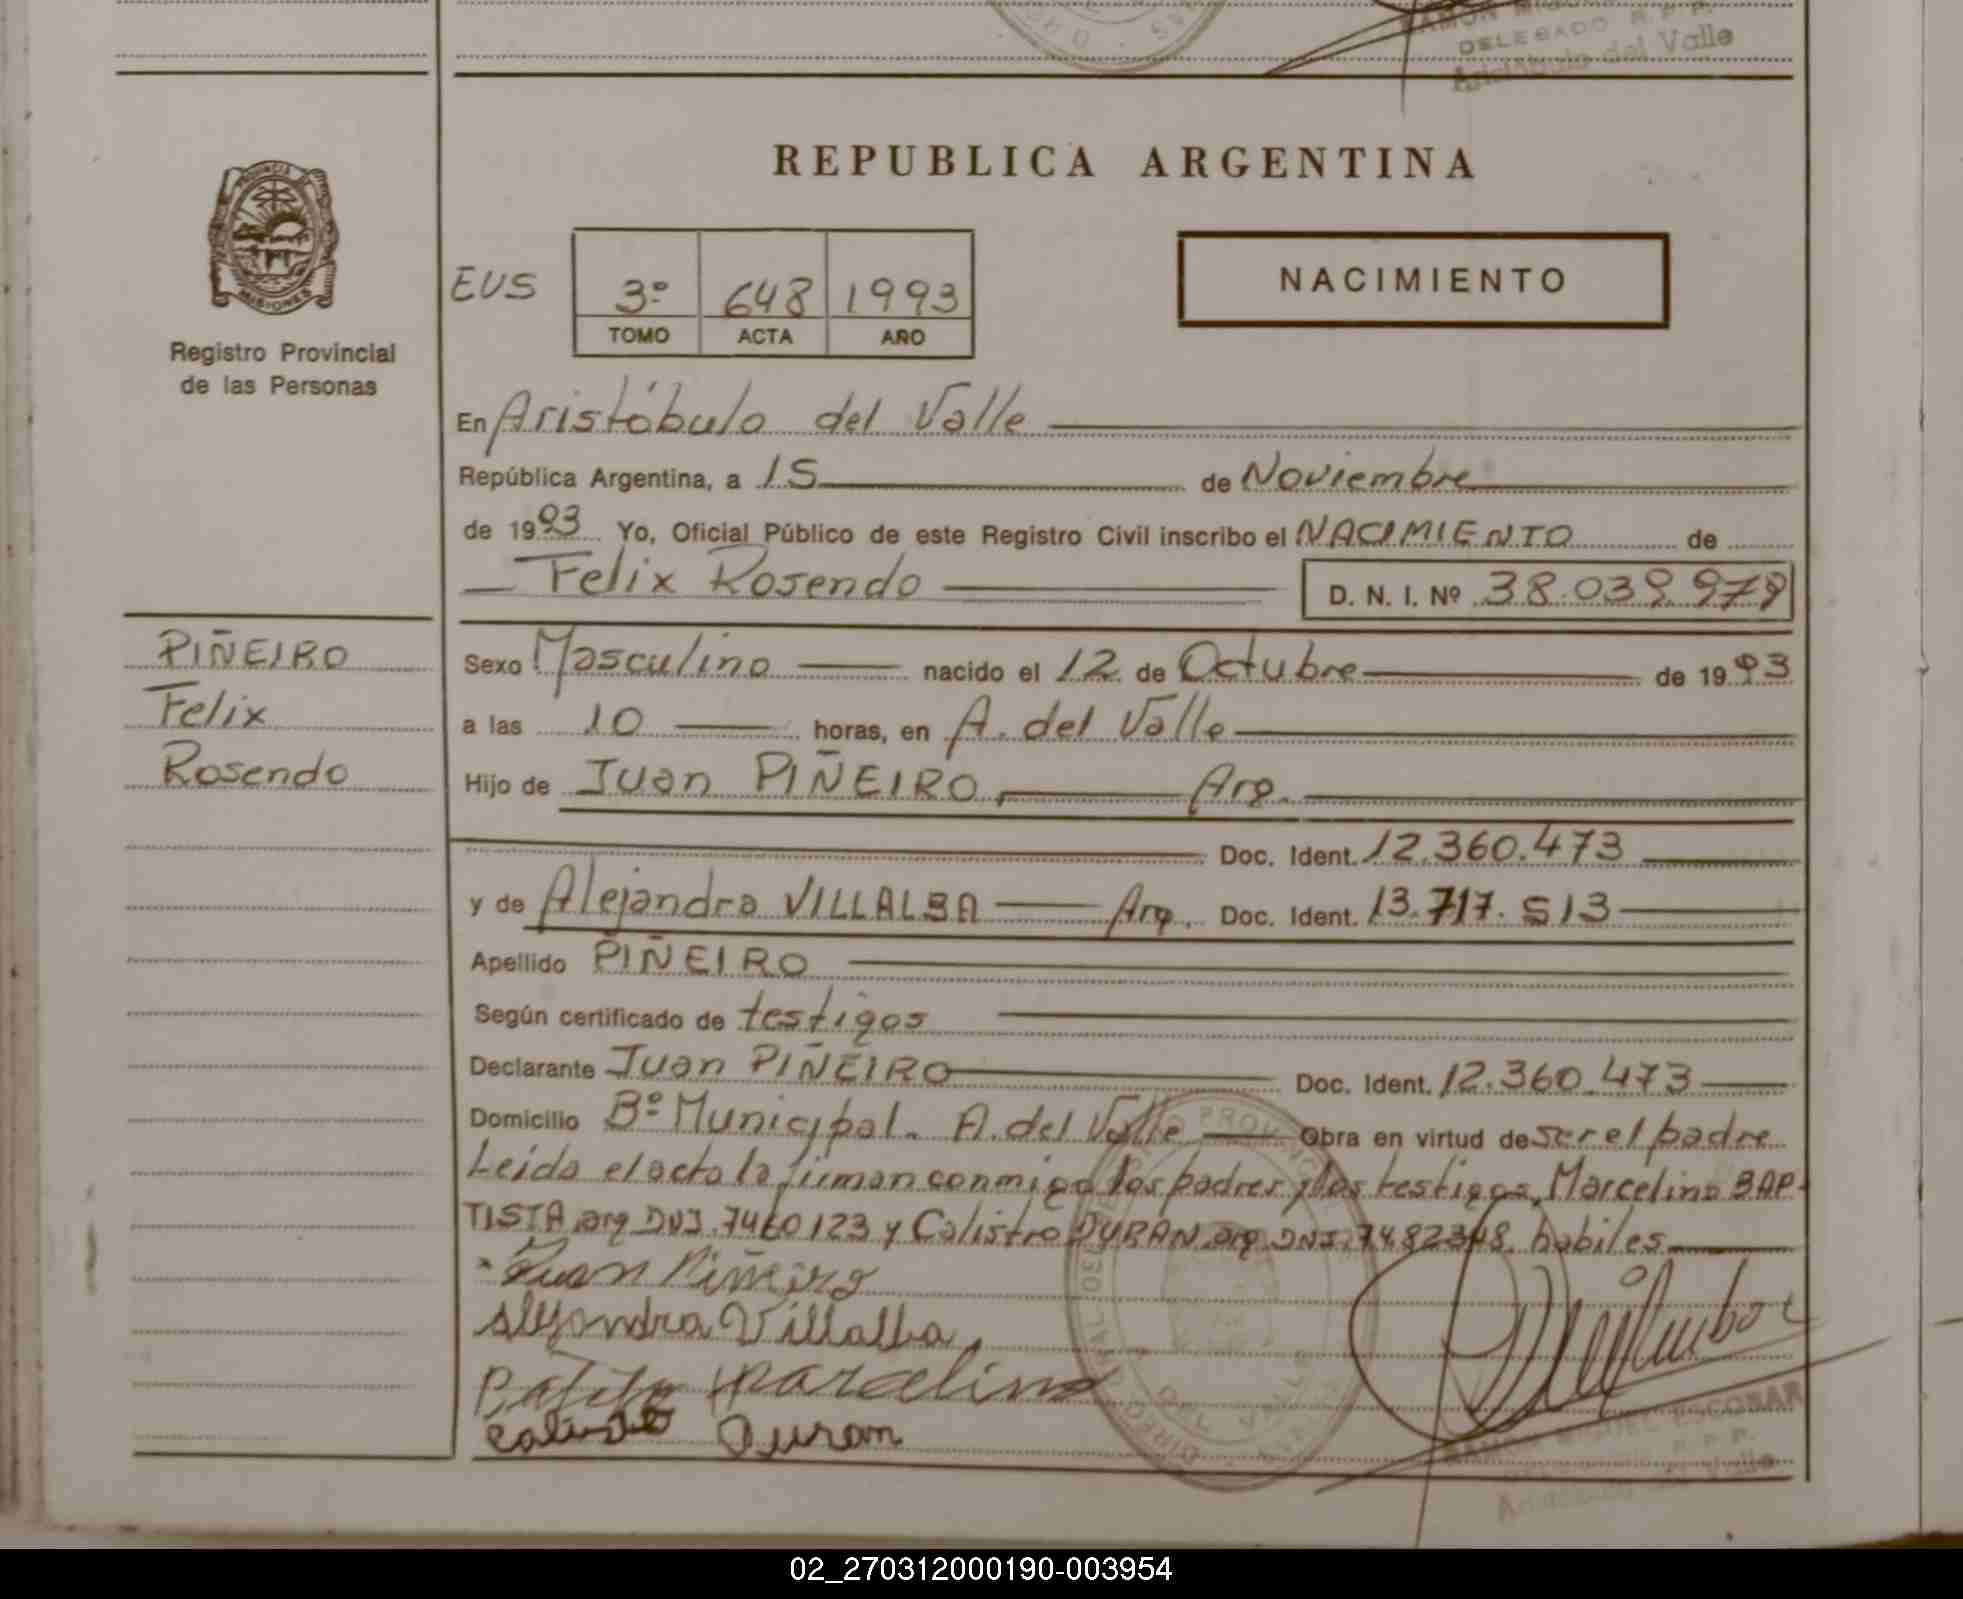 DELEGADO R.P.P.
Aristóbulo del Valle
PROVINCIA DE
MISIONES
Registro Provincial
de las Personas
REPUBLICA ARGENTINA
EUS 3º 648 1993
TOMO ACTA AÑO
NACIMIENTO
En Aristóbulo del Valle
República Argentina, a 15 de Noviembre
de 1993 Yo, Oficial Público de este Registro Civil inscribo el NACIMIENTO de
Felix Rosendo D. N. I. Nº 38.039.979
PIÑEIRO
Felix
Rosendo
Sexo Masculino nacido el 12 de Octubre de 1993
a las 10 horas, en A. del Valle
Hijo de Juan PIÑEIRO, Arg.
Doc. Ident. 12.360.473
y de Alejandra VILLALBA Arg. Doc. Ident. 13.717.513
Apellido PIÑEIRO
Según certificado de testigos
Declarante Juan PIÑEIRO Doc. Ident. 12.360.473
Domicilio Bº Municipal. A. del Valle Obra en virtud de ser el padre
Leída el acta la firman conmigo los padres y los testigos, Marcelino BAP-
TISTA, arg DNI.7460123 y Calistro DURAN, arg DNI.7482348. habiles
Juan Piñeiro
Alejandra Villalba
Marcelino
Duran
RAMON MIGUEL ESCOBAR
R.P.P.
Aristóbulo del Valle
02_270312000190-003954